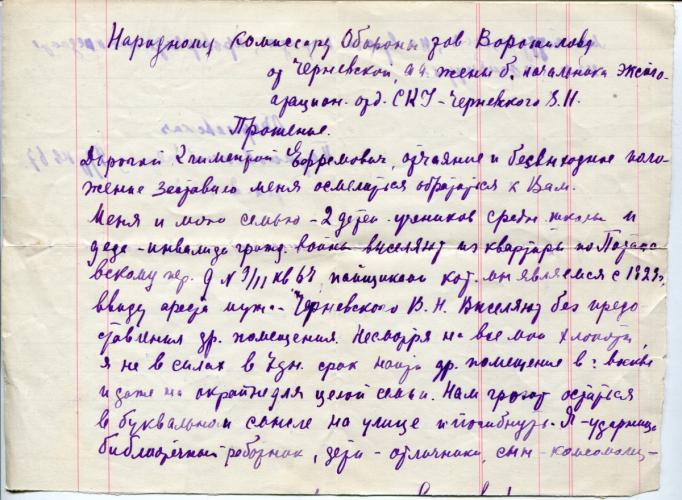 Народному Комиссару Обороны тов Ворошилову
от Черневской, жены б. начальника
отд. СКУ - Черневского В.Н.
Прошение.
Дорогой Климентий Ефремович, отчаяние и безвыходное поло-
жение заставило меня осмелиться обратиться к Вам.
Меня и мою семью - 2 детей учеников средн. школы и
деда - инвалида гражд. войны выселяют из квартиры по
пер. д N 9/11 кв 64, пайщиками кот. мы являемся с
ввиду ареста мужа - Черневского В.Н. Выселяют без предо
ставления др. помещения. Несмотря на все мои хлопоты,
я не в силах в дн. срок найти др. помещение в г. Москве
и даже на окраине для целой семьи. Нам грозит остаться
в буквальном смысле на улице и погибнуть. Я - ударница
библиотечный работник, дети - отличники, сын - комсомолец -